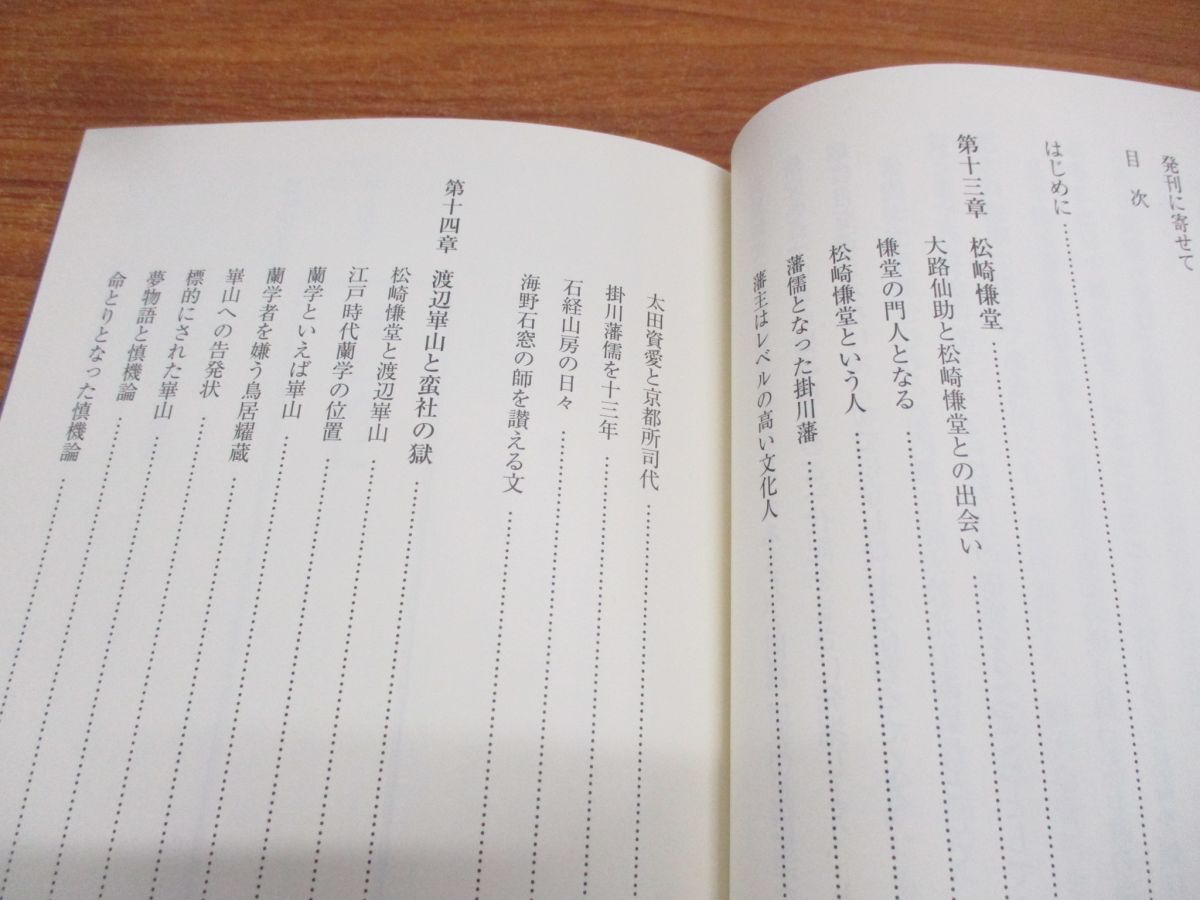 発刊に寄せて
目次
はじめに
第十三章 松崎慊堂
大路仙助と松崎慊堂との出会い
慊堂の門人となる
松崎慊堂という人
藩儒となった掛川藩
藩主はレベルの高い文化人
太田資愛と京都所司代
掛川藩儒を十三年
石経山房の日々
海野石窓の師を讃える文
第十四章 渡辺崋山と蛮社の獄
松崎慊堂と渡辺崋山
江戸時代蘭学の位置
蘭学といえば崋山
蘭学者を嫌う鳥居耀蔵
崋山への告発状
標的にされた崋山
夢物語と慎機論
命とりとなった慎機論